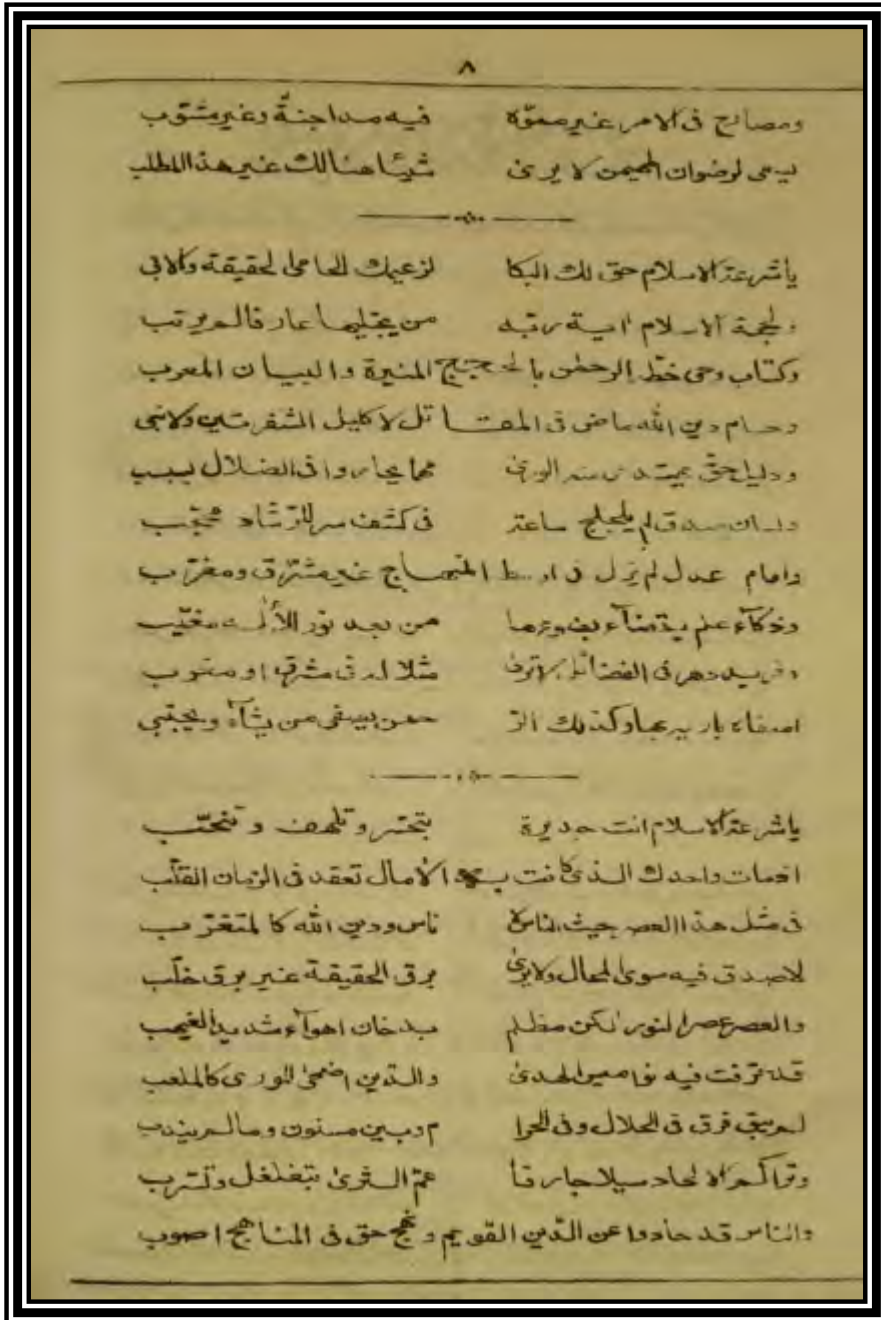 ٨
ومصالح فى الامر غير مموّه فيه مداجنةٌ وغير مشوّب
يسعى لرضوان المهيمن لا يرىٰ شيئًا هنالك غير هذا المطلب
ياشرعة الاسلام حق لك البكا لزعيمك الحامى لحقيقة والابى
ولحجة الاسلام اية رتبه من يجتليها عارفا لم يرتب
وكتاب وحى خطّه الرحمٰن بالحجج المنيرة والبيان المعرب
وحسام دين الله ماضى فى المقاتل لا كليل الشفرتين ولانبى
ودليل حقّ يهتدى منه الورىٰ مما يحاروا فى الضلال بسبب
ولسان صدق لم يلجلج ساعة فى كشف سر للرّشاد محجّب
وامام عدل لم يزل فى اوسط المنهاج غير مشرّق ومغرّب
وذكآء علم يستضآء بضوءها من بعد نور الأئمه مغيّب
وفريد دهر فى الفضائل لا ترىٰ مثلا له فى مشرق او مغرب
اصفاه باريه بها وكذلك الر حمن يصفى من يشآء ويجتبى
ياشرعة الاسلام انت جديرة بتحسّر وتلهف وتنحّب
اذمات واحدك الذى كانت به الأمال تعقد فى الزمان القلّب
فى مثل هذا العصر حيث الناس لا ناس ودين الله كالمتغرّب
لاصدق فيه سوىٰ المحال ولايرىٰ برق الحقيقة غير برق خلّب
والعصر عصر النور لكن مظلم بدخان اهوآء شديد الغيهب
قد مزقت فيه نواميس الهدىٰ والدّين اضحىٰ للورى كالملعب
لم يبق فرق فى الحلال وفى الحرا م وبين مسنون وما لم يندب
وتراكم الالحاد سيلا جارفا عمّ الثرىٰ بتغلغل وتسرب
والناس قد حادوا عن الدّين القويم ونهج حق فى المناهج اصوب